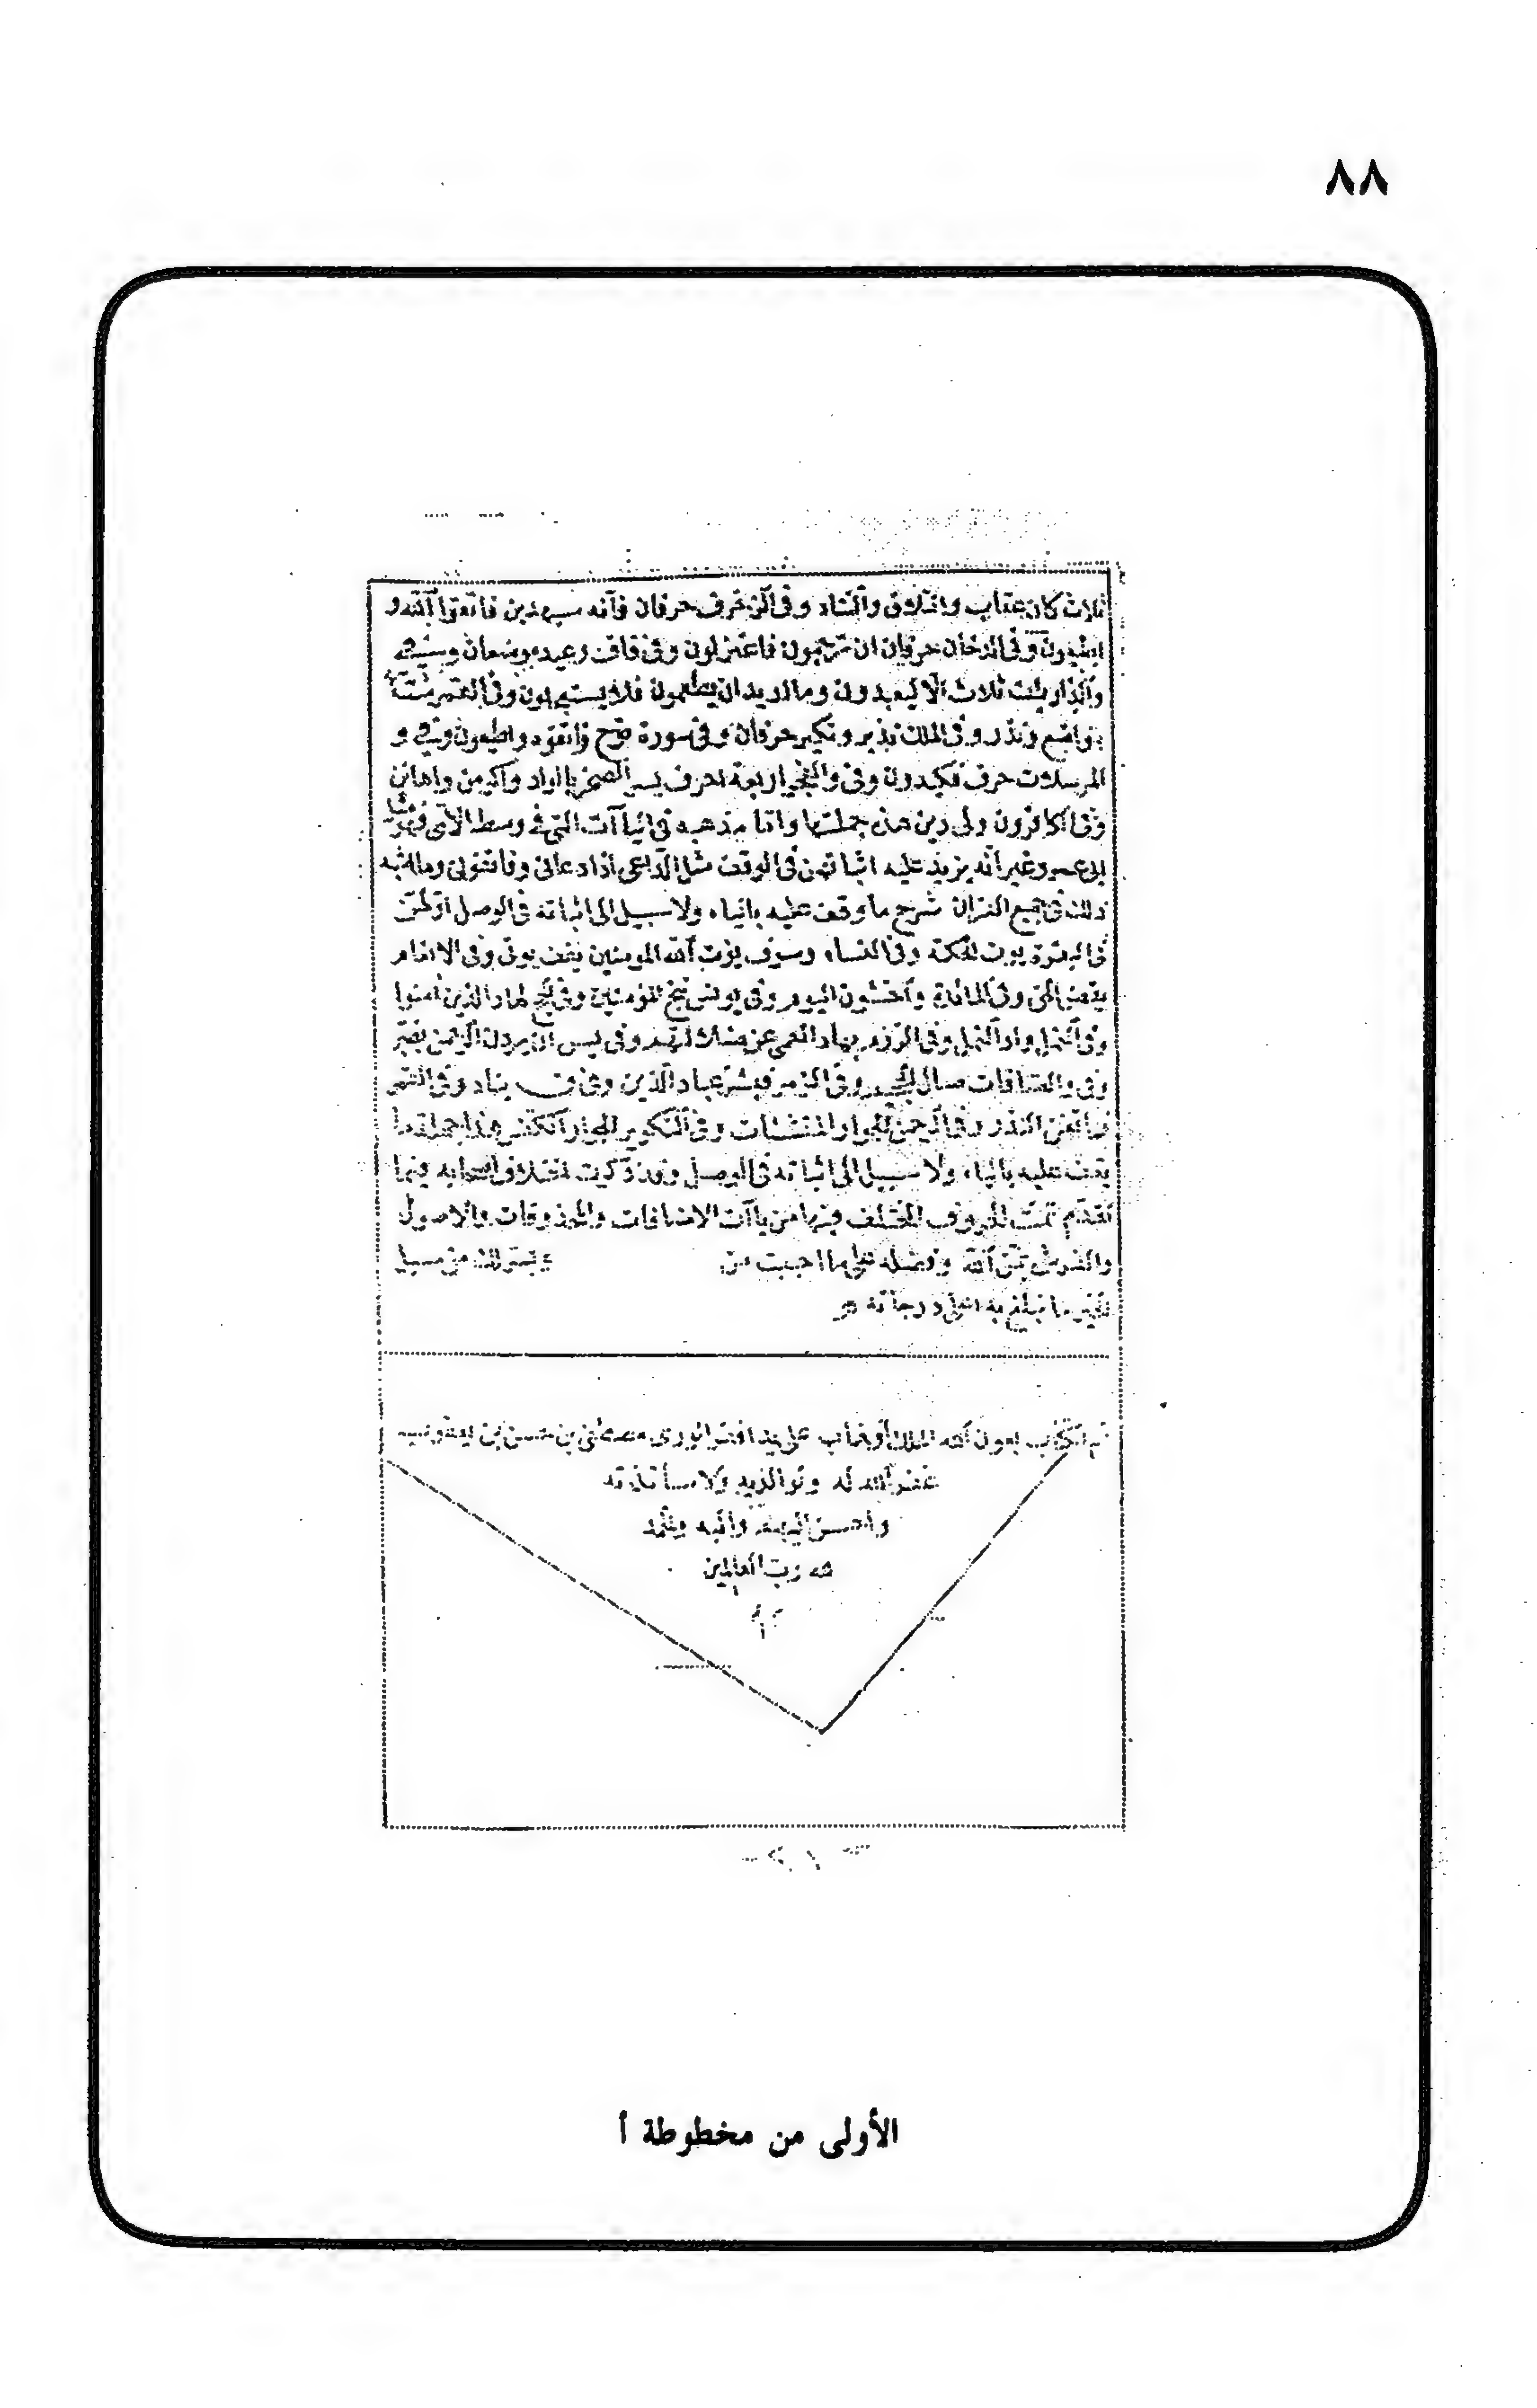 ٨٨
ثلاث كان عقاب والتلاق والتناد وفى الزخرف حرفان فانه سيهدين فاتقوا الله و
اطيعون وفى الدخان حرفان ان ترجمون فاعتزلون وفى قاف وعيد موضعان وفى
والذاريات ثلاث الا ليعبدون وما اريد ان يطعمون فلا يستعجلون وفى القمر ستة
مواضع ونذر وفى الملك نذير ونكير حرفان وفى سورة نوح واتقوه واطيعون وفى و
المرسلات حرف فكيدون وفى والفجر اربعة احرف يسر الصخر بالواد واكرمن واهانن
وفى الكافرون ولى دين هذه جملتها واما مذهبه فى الياآت التى فى وسط الآى فهو مثل
ابى عمرو غير انه يزيد عليه اثباتهن فى الوقف مثل الداعى اذا دعانى وفاتقونى وما اشبه
ذلك فى جميع القران شرح ما وقف عليه بالياء ولا سبيل الى اثباته فى الوصل اولهن
فى البقرة يوت الحكمة وفى النساء وسوف يؤت الله المومنين يقف يوتى وفى الانعام
يقض الحق وفى المائدة واخشون اليوم وفى يونس ننج المؤمنين وفى الحج لهاد الذين امنوا
وفى النمل واد النمل وفى الروم بهاد العمى عن ضلالتهم وفى يس ان يردن الرحمن بضر
وفى والصافات صال الجحيم وفى الزمر فبشر عباد الذين وفى ق يناد وفى القمر
فما تغن النذر وفى الرحمن الجوار المنشئات وفى التكوير الجوار الكنس هذا جملة ما
يقف عليه بالياء ولا سبيل الى اثباته فى الوصل وقد ذكرت اختلاف اصحابه فيما
تقدم تمت الحروف المختلف فيها من ياآت الاضافات والمحذوفات والاصول
والفرش بمن الله وفضله على ما احببت من من سبيل
ما نبلغ به اعلى درجاته
تم الكتاب بعون الله الملك الوهاب على يد افقر الورى مصطفى بن حسن بن
غفر الله له ولوالديه ولاساتذته
واحسن اليهم واليه
لله رب العالمين
الأولى من مخطوطة أ